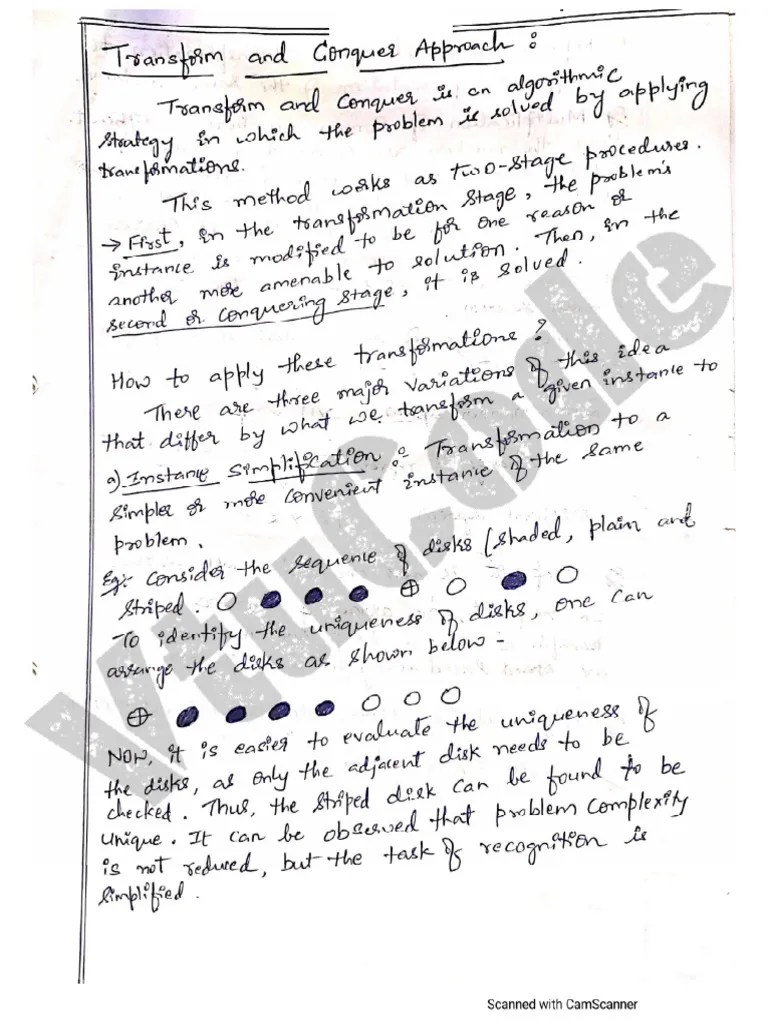 Transform and Conquer Approach :
Transform and Conquer is an algorithmic
strategy in which the problem is solved by applying
transformations.
This method works as two-stage procedures.
→ First, in the transformation stage, the problem's
instance is modified to be for one reason or
another more amenable to solution. Then, in the
second or conquering stage, it is solved.
How to apply these transformations?
There are three major variations of this idea
that differ by what we transform a given instance to
a) Instance Simplification : Transformation to a
simpler or more convenient instance of the same
problem.
Eg:- Consider the sequence of disks (shaded, plain and
striped.
To identify the uniqueness of disks, one can
arrange the disks as shown below -
Now, it is easier to evaluate the uniqueness of
the disks, as only the adjacent disk needs to be
checked. Thus, the striped disk can be found to be
unique. It can be observed that problem complexity
is not reduced, but the task of recognition is
simplified.
VtuCode
Scanned with CamScanner